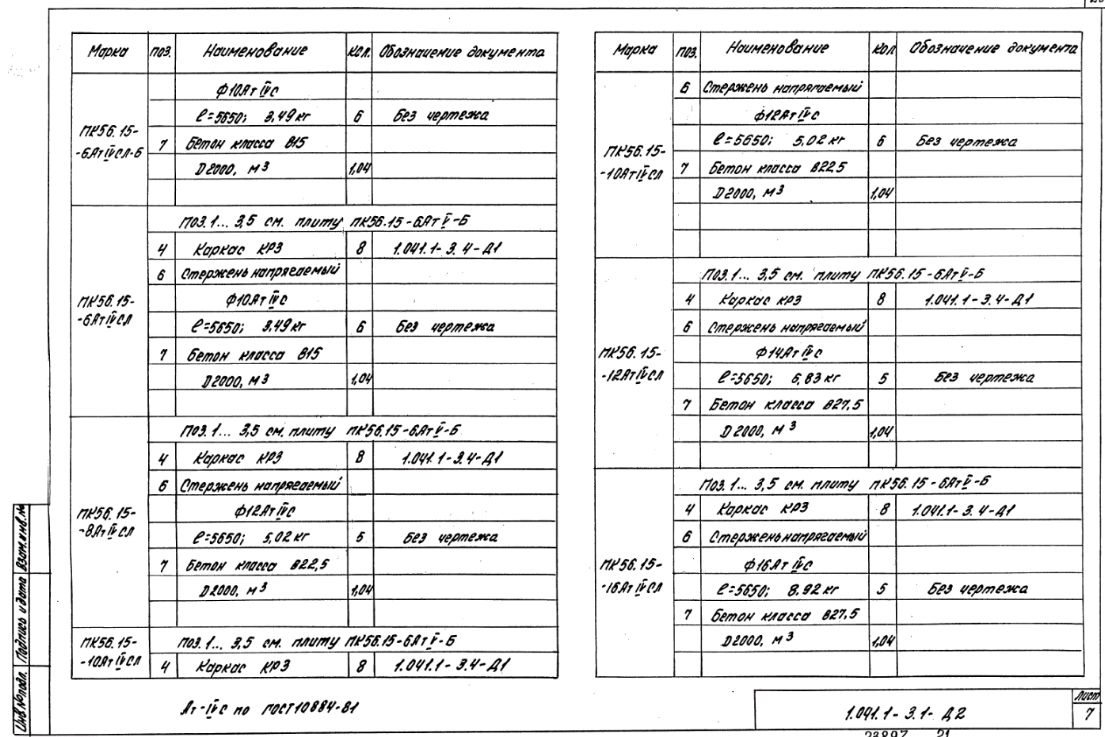 Марка поз. Наименование кол. Обозначение документа
ПК56.15-
-6АтIVСЛ-Б
Ф10АтIVС
ℓ=5650; 3,49кг 6 Без чертежа
7 Бетон класса В15
D2000, м3 1,04
ПК56.15-
-6АтIVСЛ
Поз. 1... 3,5 см. плиту ПК56.15-6АтV-Б
4 Каркас КР3 8 1.041.1-3.4-Д1
6 Стержень напрягаемый
Ф10АтIVС
ℓ=5650; 3,49кг 6 Без чертежа
7 Бетон класса В15
D2000, м3 1,04
ПК56.15-
-8АтIVСЛ
Поз. 1... 3,5 см. плиту ПК56.15-6АтV-Б
4 Каркас КР3 8 1.041.1-3.4-Д1
6 Стержень напрягаемый
Ф12АтIVС
ℓ=5650; 5,02кг Без чертежа
7 Бетон класса В22,5
D2000, м3 1,04
ПК56.15-
-10АтIVСЛ
Поз. 1... 3,5 см. плиту ПК56.15-6АтV-Б
4 Каркас КР3 8 1.041.1-3.4-Д1
Ат-IVС по ГОСТ10884-81
Марка поз. Наименование кол Обозначение документа
ПК56.15-
-10АтIVСЛ
6 Стержень напрягаемый
Ф12АтIVС
ℓ=5650; 5,02кг 6 Без чертежа
7 Бетон класса В22,5
D2000, м3 1,04
ПК56.15-
-12АтIVСЛ
Поз. 1... 3,5 см. плиту ПК56.15-6АтV-Б
4 Каркас КР3 8 1.041.1-3.4-Д1
6 Стержень напрягаемый
Ф14АтIVС
ℓ=5650; 6,83кг 5 Без чертежа
7 Бетон класса В27,5
D2000, м3 1,04
ПК56.15-
-16АтIVСЛ
Поз. 1... 3,5 см. плиту ПК56.15-6АтV-Б
4 Каркас КР3 8 1.041.1-3.4-Д1
6 Стержень напрягаемый
Ф16АтIVС
ℓ=5650; 8.92кг 5 Без чертежа
7 Бетон класса В27,5
D2000, м3 1,04
1.041.1-3.1-Д2
Лист
7
23897 21
Инв.№подл. Подпись и дата Взам.инв.№